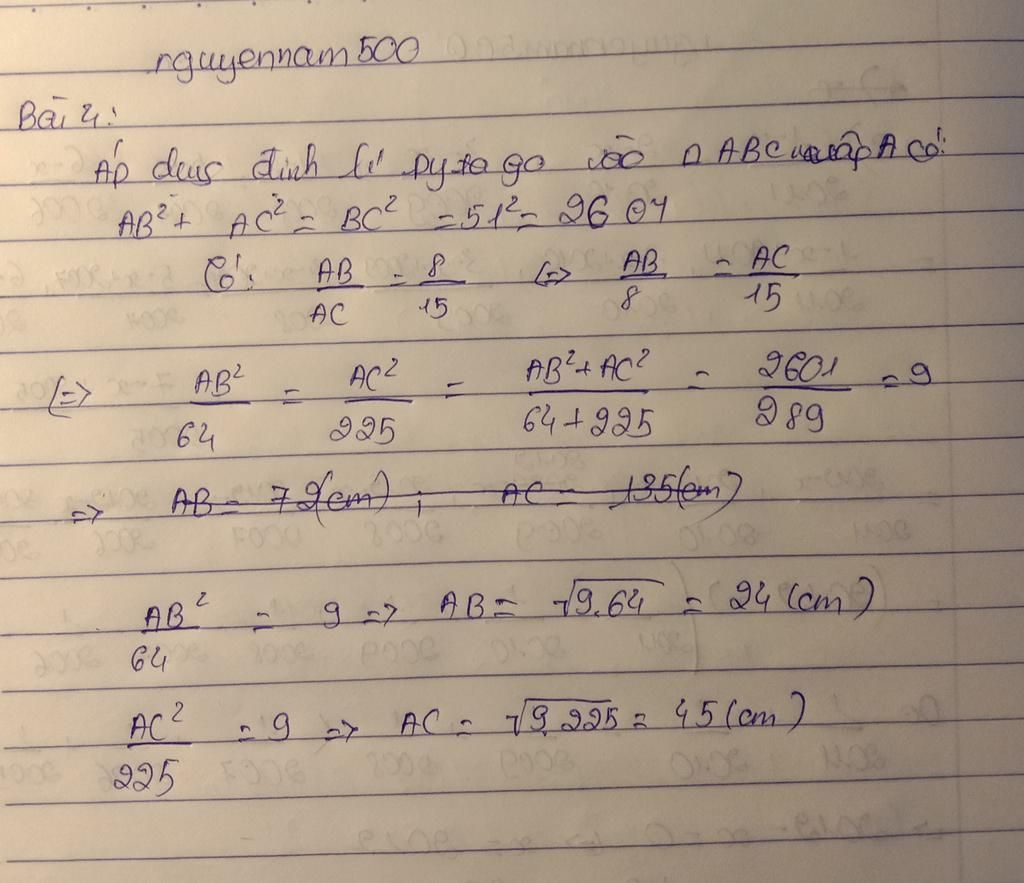 nguyennam500
Bài 4:
Áp dụng định lí pytago vào Δ ABC vuông tại A có:
AB² + AC² = BC² = 51² = 2601
Có: AB/AC = 8/15 <=> AB/8 = AC/15
<=> AB²/64 = AC²/225 = AB² + AC²/64 + 225 = 2601/289 = 9
=> AB = 72(cm) ; AC = 135(cm)
AB²/64 = 9 => AB = √9.64 = 24 (cm)
AC²/225 = 9 => AC = √9.225 = 45 (cm)